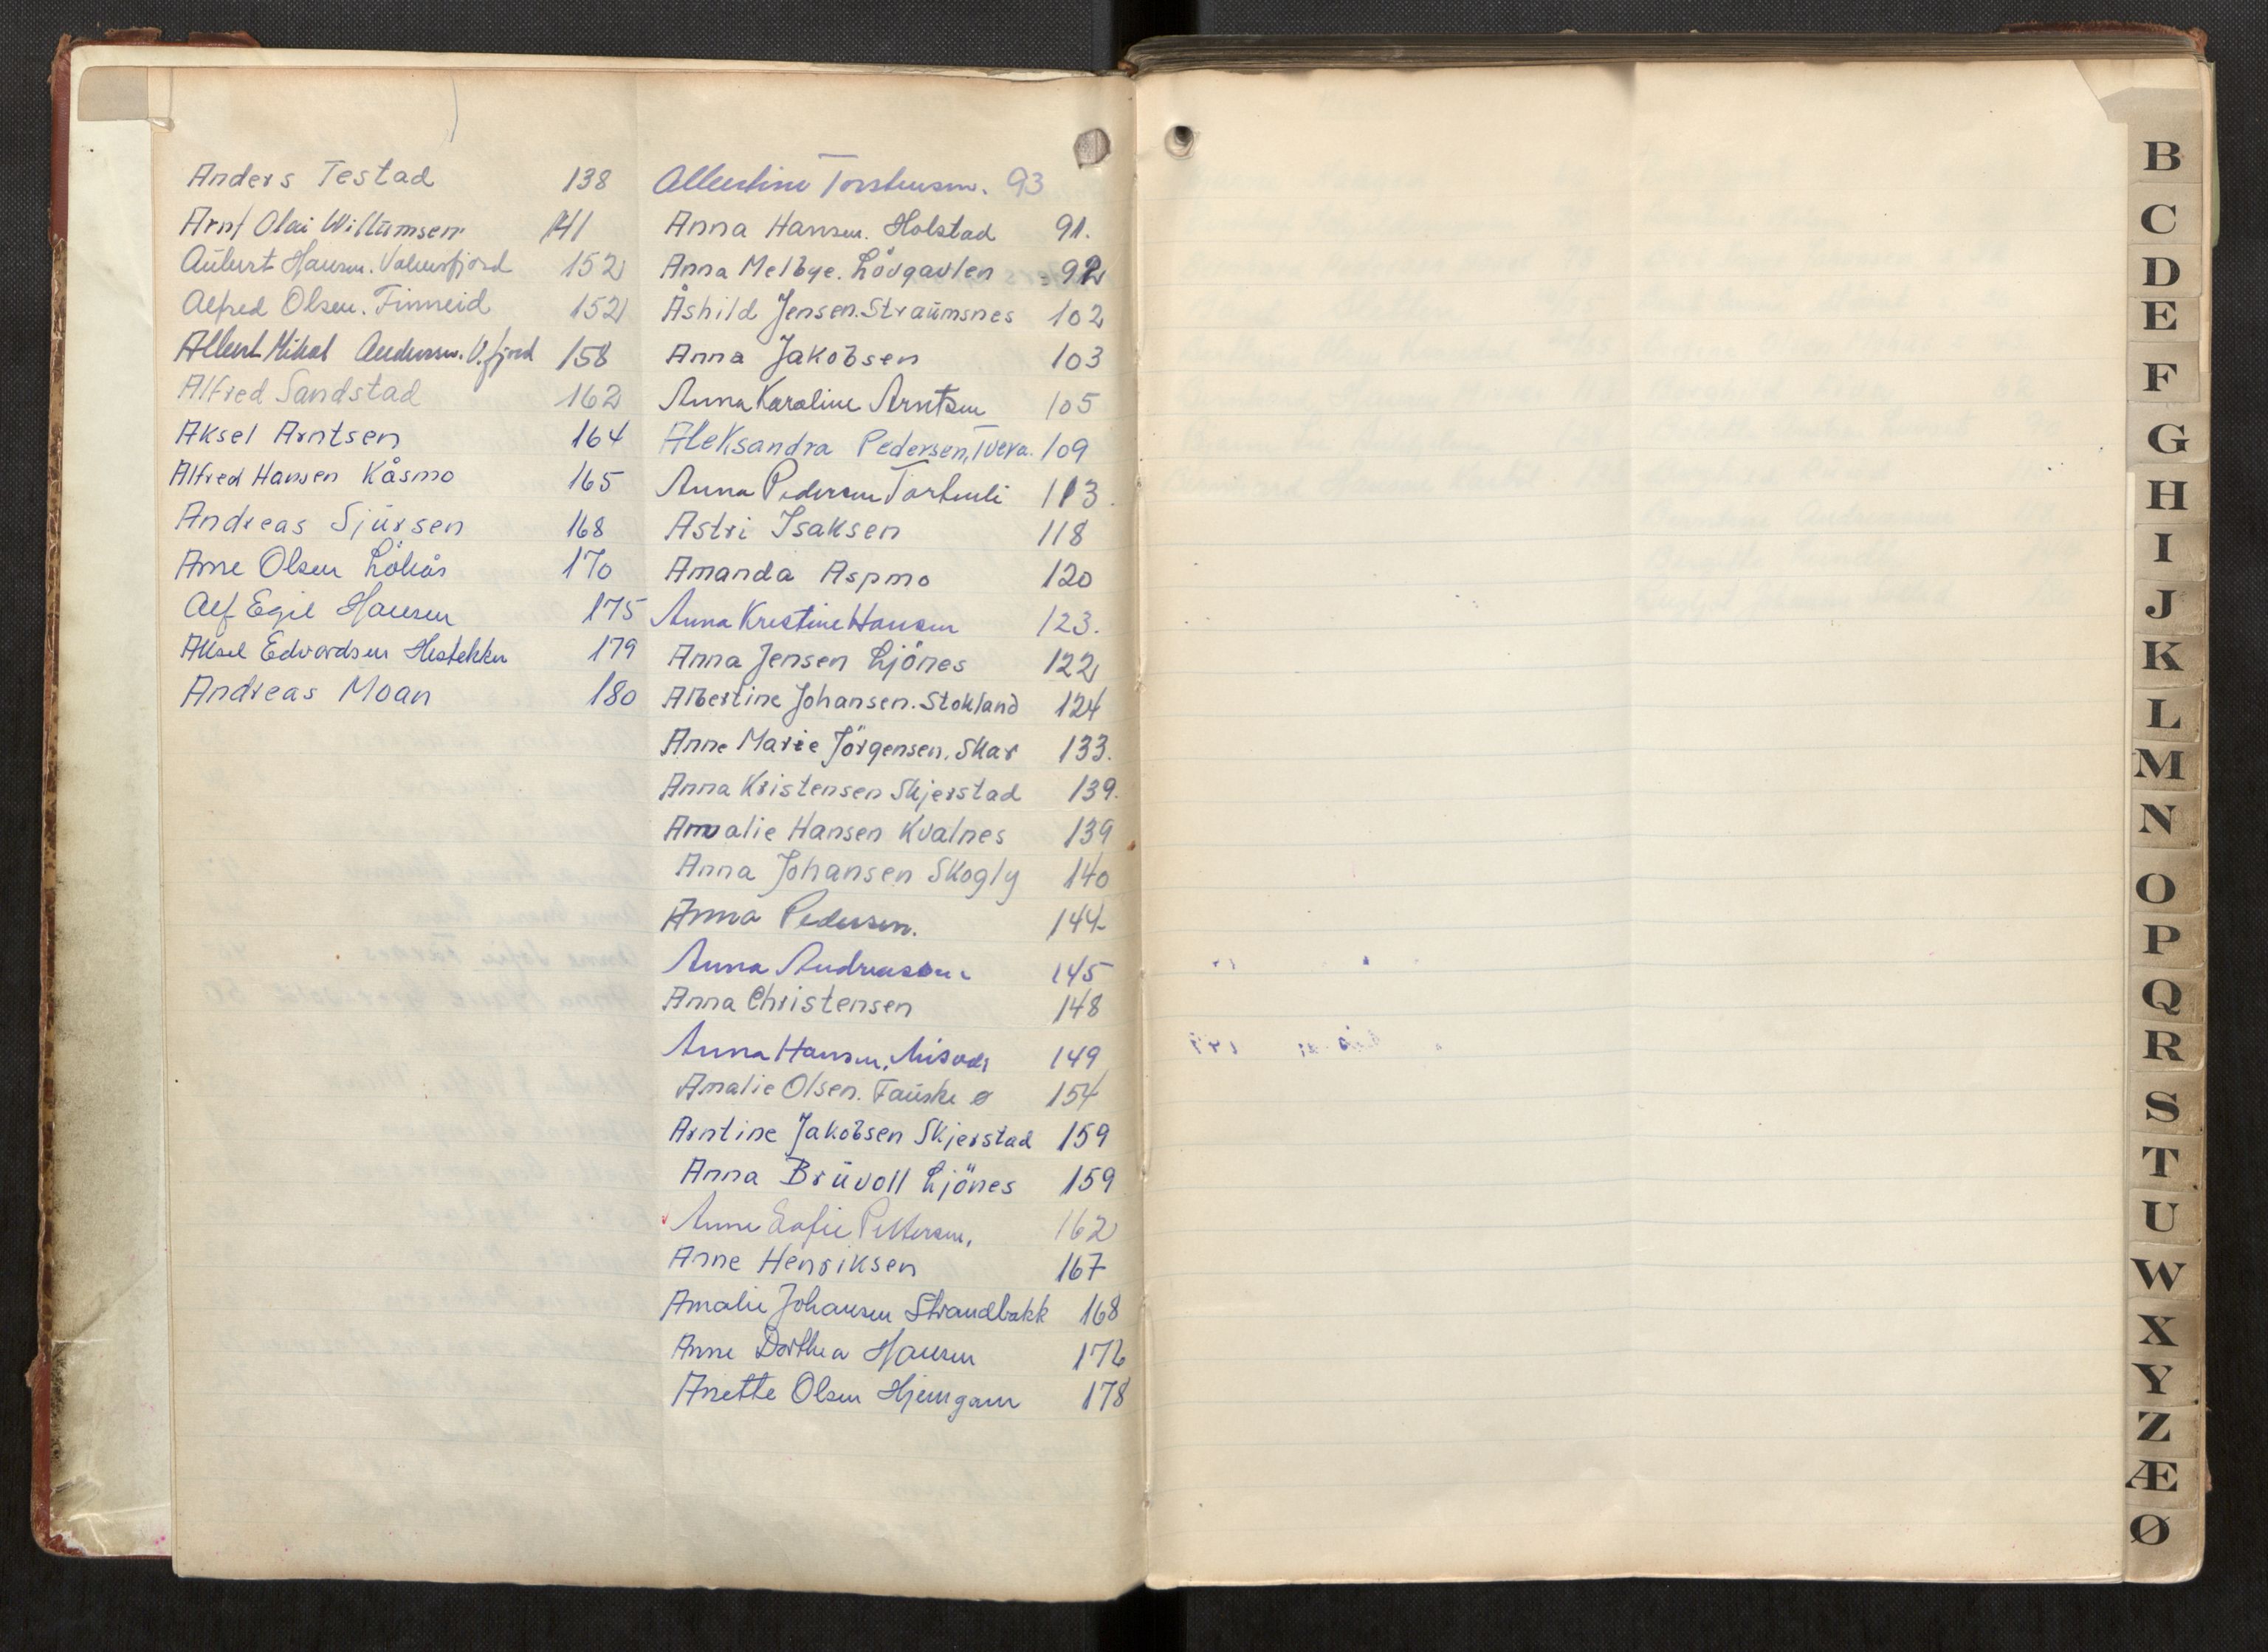 Anders Testad 138
Arnt Olai Willumsen 141
Aubert Hansen. Valnesfjord 152
Alfred Olsen. Finneid 152
Albert Mikal Andersen. V.fjord 158
Alfred Sandstad 162
Aksel Arntsen 164
Alfred Hansen Kåsmo 165
Andreas Sjursen 168
Arne Olsen Løkås 170
Alf Egil Hansen 175
Aksel Edvardsen 179
Andreas Moan 180
Albertine Torstensen. 93
Anna Hansen. Holstad 91.
Anna Melbye. Lövgavlen 92
Åshild Jensen. Straumsnes 102
Anna Jakobsen 103
Anna Karoline Arntsen 105
Aleksandra Pedersen, Tverå. 109
Anna Pedersen 113.
Astri Isaksen 118
Amanda Aspmo 120
Anna Kristine Hansen 123.
Anna Jensen Ljönes 122
Albertine Johansen. Stokland 124
Anne Marie Jörgensen. Skar 133.
Anna Kristensen Skjerstad 139.
Amalie Hansen Kvalnes 139
Anna Johansen Skogly 140
Anna Pedersen. 144
Anna Andreassen 145
Anna Christensen 148
Anna Hansen, Misvær 149
Amalie Olsen. Fauske ø 154
Arntine Jakobsen Skjerstad 159
Anna Bruvoll Ljönes 159
Anne Sofie Pettersen, 162
Anne Henriksen 167
Amalie Johansen Strandbakk 168
Anne Dorthea Hansen 176
Anette Olsen Hjemgam 178
B
C
D
E
F
G
H
I
J
K
L
M
N
O
P
Q
R
S
T
U
W
X
Y
Z
Æ
Ø